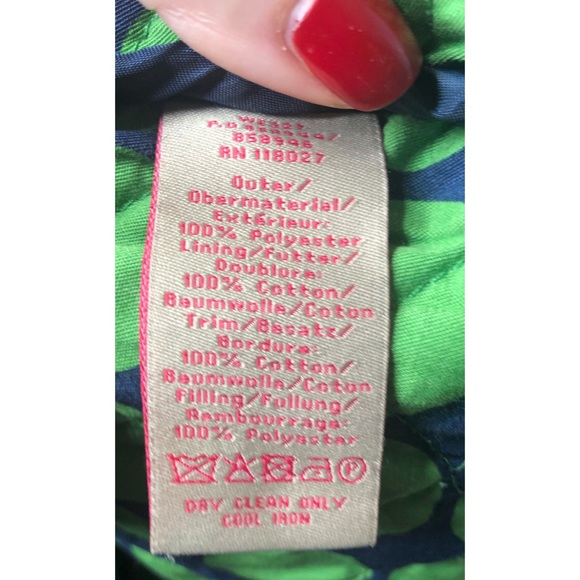 858996
RN 118027
Outer/
Obermaterial/
Extérieur:
100% Polyester
Lining/Futter/
Doublure:
100% Cotton/
Baumwolle/Coton
Trim/Besatz/
Bordure:
100% Cotton/
Baumwolle/Coton
Filling/Fullung/
Rembourrage:
100% Polyester
DRY CLEAN ONLY
COOL IRON